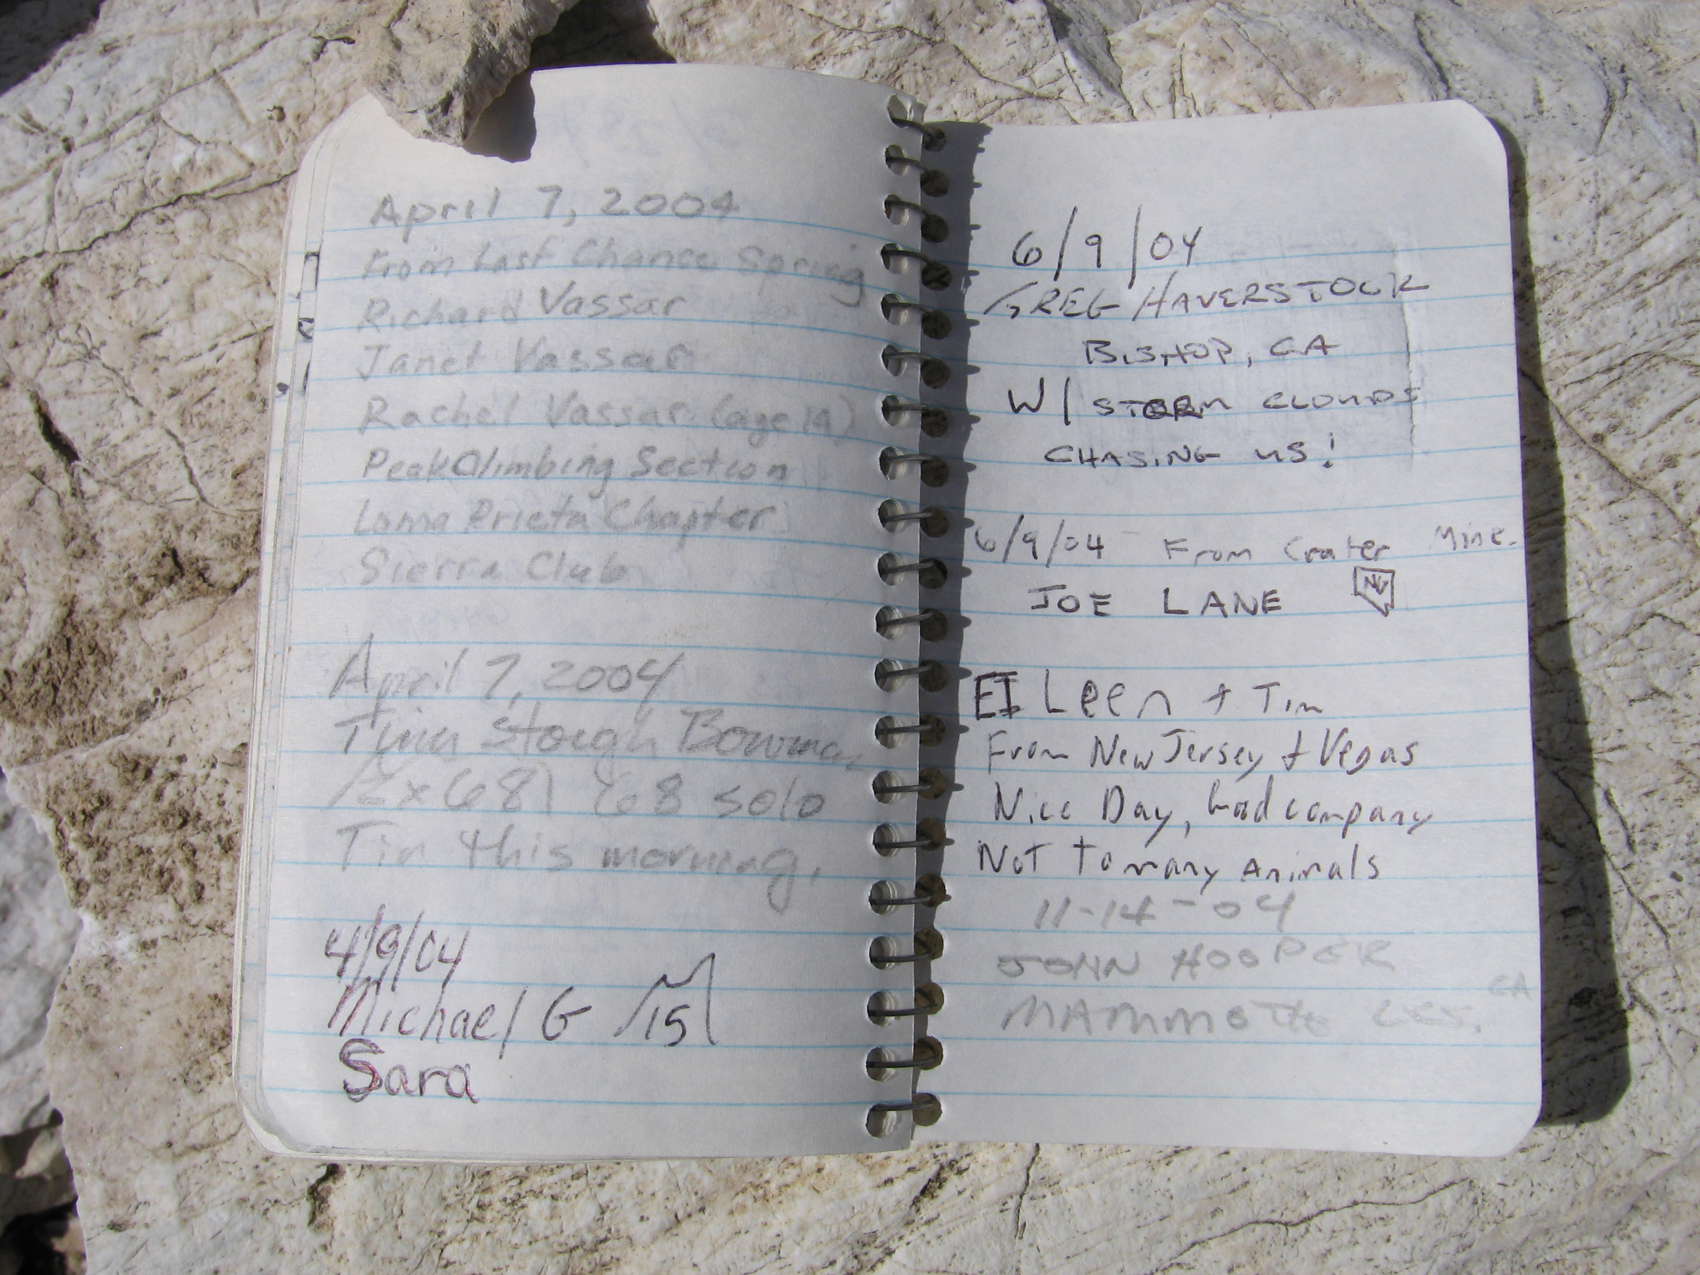 April 7, 2004
From Last Chance Spring
Richard Vassar
Janet Vassar
Rachel Vassar (age 14)
Peak Climbing Section
Loma Prieta Chapter
Sierra Club
April 7, 2004
Bowman
68 solo
Tin this morning,
4/9/04
Michael G
Sara
6/9/04
GREG HAVERSTOCK
BISHOP, CA
W/ STORM CLOUDS
CHASING US!
6/9/04 From Crater Mine.
JOE LANE NV
EILeen + Tim
From New Jersey + Vegas
Nice Day, Good company
Not to many Animals
11-14-04
JOHN HOOPER
MAMMOTH LKS. CA